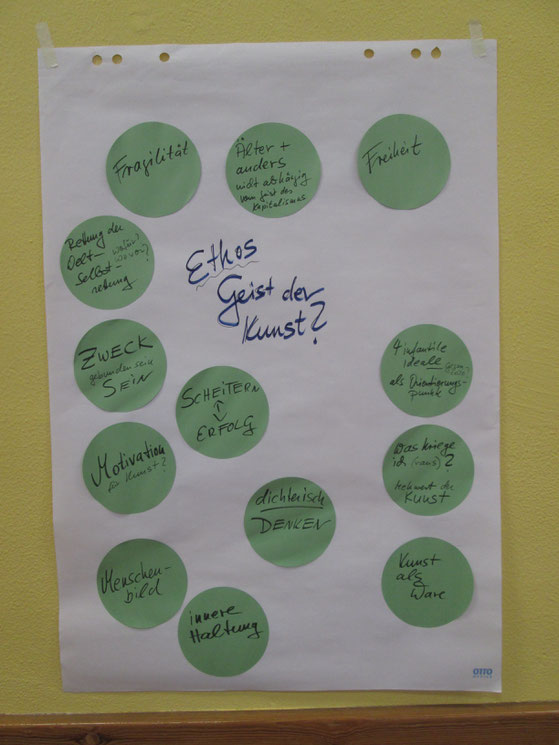 Fragilität
Älter +
anders
nicht abhängig
vom Geist des
Kapitalismus
Freiheit
Rettung der
Welt – wofür?
Selbst – wovor?
rettung
Ethos
Geist der
Kunst?
ZWECK
gebunden sein
SEIN
SCHEITERN
↕
ERFOLG
4 infantile
ideale
als Orientierungs-
punkte
Motivation
für Kunst?
Was kriege
ich (raus)?
der
KUNST
dichterisch
DENKEN
Menschen-
bild
innere
Haltung
Kunst
als
Ware
OTTO